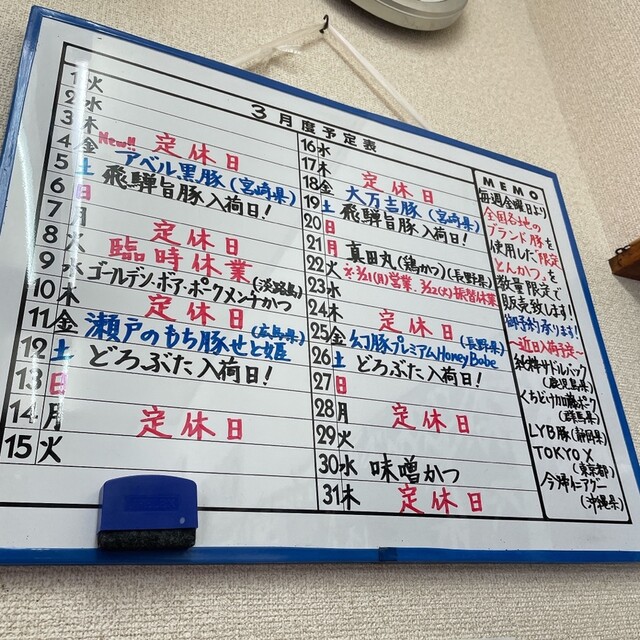 3月度予定表
1 火
2 水
3 木 定休日
4 金 New!! アベル黒豚(宮崎県)
5 土 飛騨旨豚入荷日!
6 日
7 月 定休日
8 火 臨時休業
9 水 ゴールデン・ボア・ポークメンチかつ(淡路島)
10 木 定休日
11 金 瀬戸のもち豚せと姫(広島県)
12 土 どろぶた入荷日!
13 日
14 月 定休日
15 火
16 水
17 木 定休日
18 金 大万吉豚(宮崎県)
19 土 飛騨旨豚入荷日!
20 日
21 月 真田丸(鶏かつ)(長野県)
22 火 ※3/21(月)営業、3/22(火)振替休業
23 水
24 木 定休日
25 金 幻豚プレミアムHoneyBabe(長野県)
26 土 どろぶた入荷日!
27 日
28 月 定休日
29 火
30 水 味噌かつ
31 木 定休日
MEMO
毎週金曜日より
全国各地の
ブランド豚を
使用した「限定
とんかつ」を
数量限定で
販売致します!
御予約承ります!
〜近日入荷予定〜
純粋サドルバック
(鹿児島県)
くちどけ加藤ポーク
(群馬県)
LYB豚(静岡県)
TOKYO X
(東京都)
今帰仁アグー
(沖縄県)